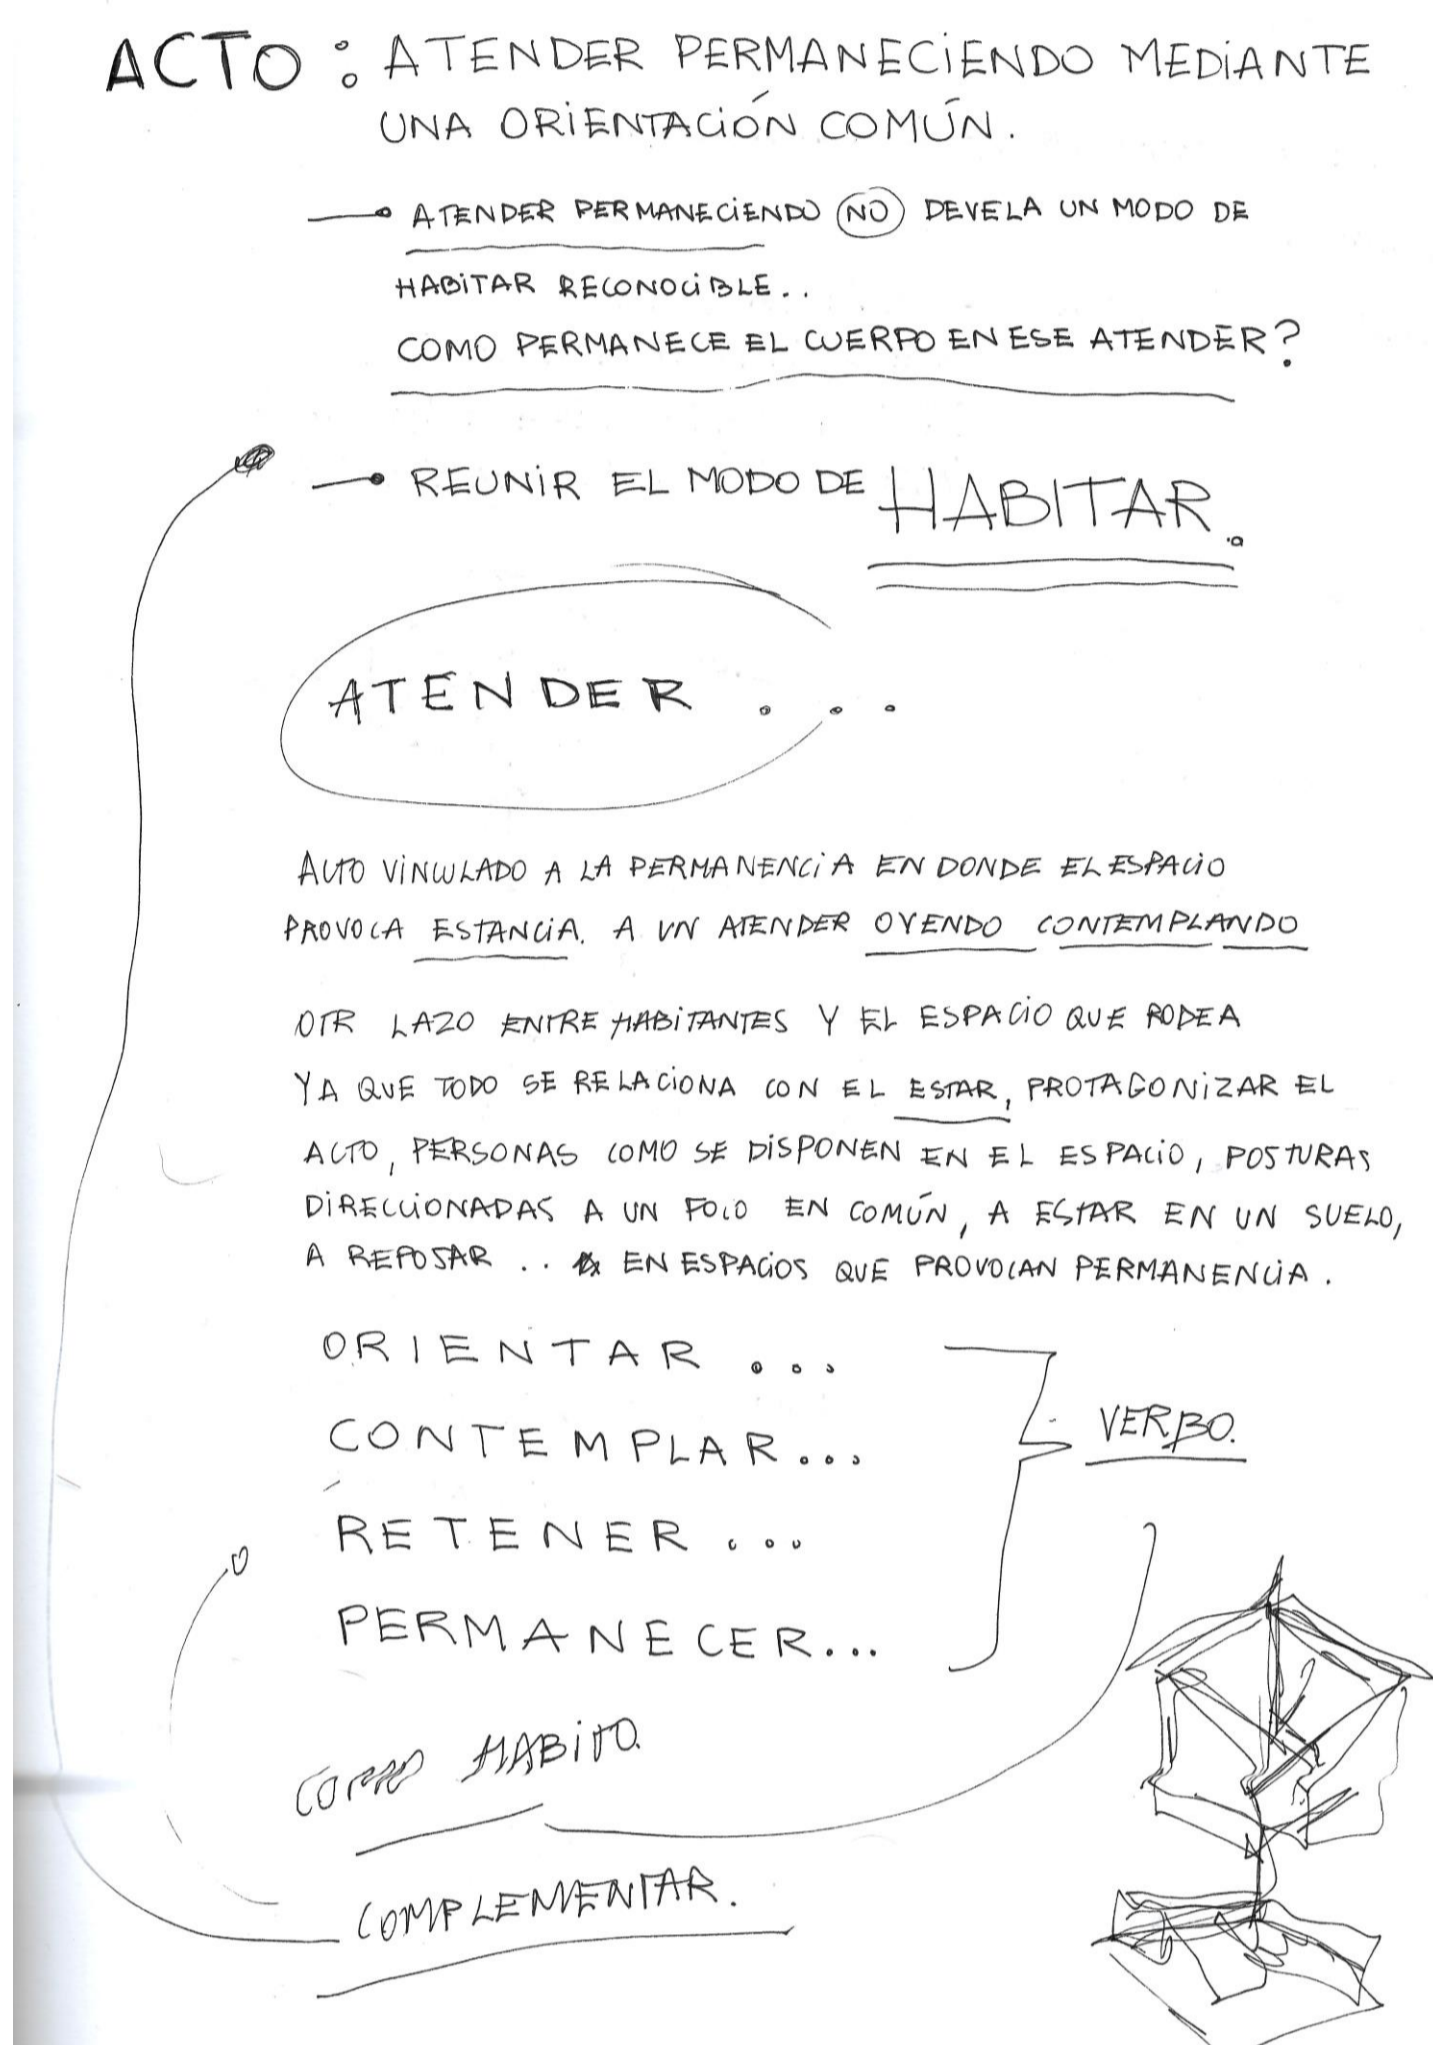 ACTO : ATENDER PERMANECiENDO MEDiANTE
UNA ORiENTACiÓN COMÚN.
ATENDER PERMANECiENDO NO DEVELA UN MODO DE
HABiTAR RECONOCiBLE..
COMO PERMANECE EL CUERPO EN ESE ATENDER?
REUNiR EL MODO DE HABITAR.
ATENDER ...
ACTO ViNCULADO A LA PERMANENCiA EN DONDE EL ESPACiO
PROVOCA ESTANCiA. A UN ATENDER OYENDO CONTEMPLANDO
OTR LAZO ENTRE HABiTANTES Y EL ESPACiO QUE RODEA
YA QUE TODO SE RELACiONA CON EL ESTAR, PROTAGONiZAR EL
ACTO, PERSONAS COMO SE DiSPONEN EN EL ESPACiO, POSTURAS
DiRECCiONADAS A UN FOCO EN COMÚN, A ESTAR EN UN SUELO,
A REPOSAR .. EN ESPACiOS QUE PROVOCAN PERMANENCiA.
ORIENTAR ...
CONTEMPLAR...
VERBO.
RETENER ...
PERMANECER...
COMO HABiTO.
COMPLEMENTAR.